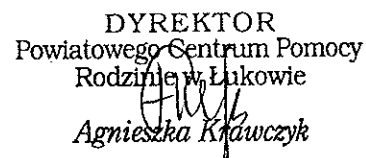 DYREKTOR
Powiatowego Centrum Pomocy
Rodzinie w Łukowie
Agnieszka Krawczyk